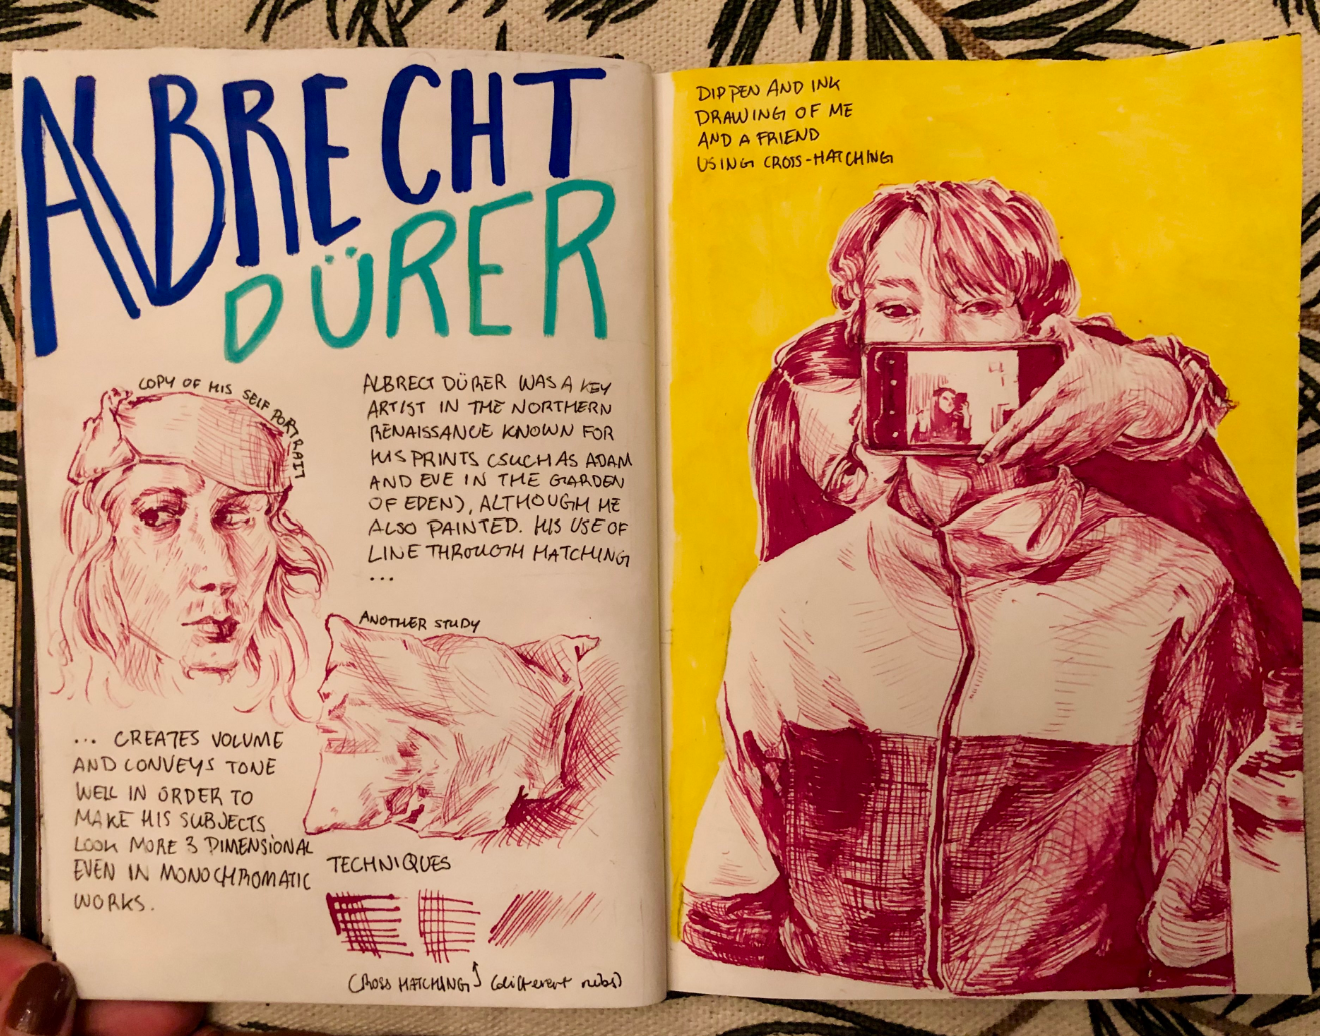 ALBRECHT
DÜRER
COPY OF HIS SELF PORTRAIT
ALBRECT DÜRER WAS A KEY
ARTIST IN THE NORTHERN
RENAISSANCE KNOWN FOR
HIS PRINTS (SUCH AS ADAM
AND EVE IN THE GARDEN
OF EDEN), ALTHOUGH HE
ALSO PAINTED. HIS USE OF
LINE THROUGH HATCHING
...
ANOTHER STUDY
... CREATES VOLUME
AND CONVEYS TONE
WELL IN ORDER TO
MAKE HIS SUBJECTS
LOOK MORE 3 DIMENSIONAL
EVEN IN MONOCHROMATIC
WORKS.
TECHNIQUES
CROSS HATCHING (different nibs)
DIP PEN AND INK
DRAWING OF ME
AND A FRIEND
USING CROSS-HATCHING